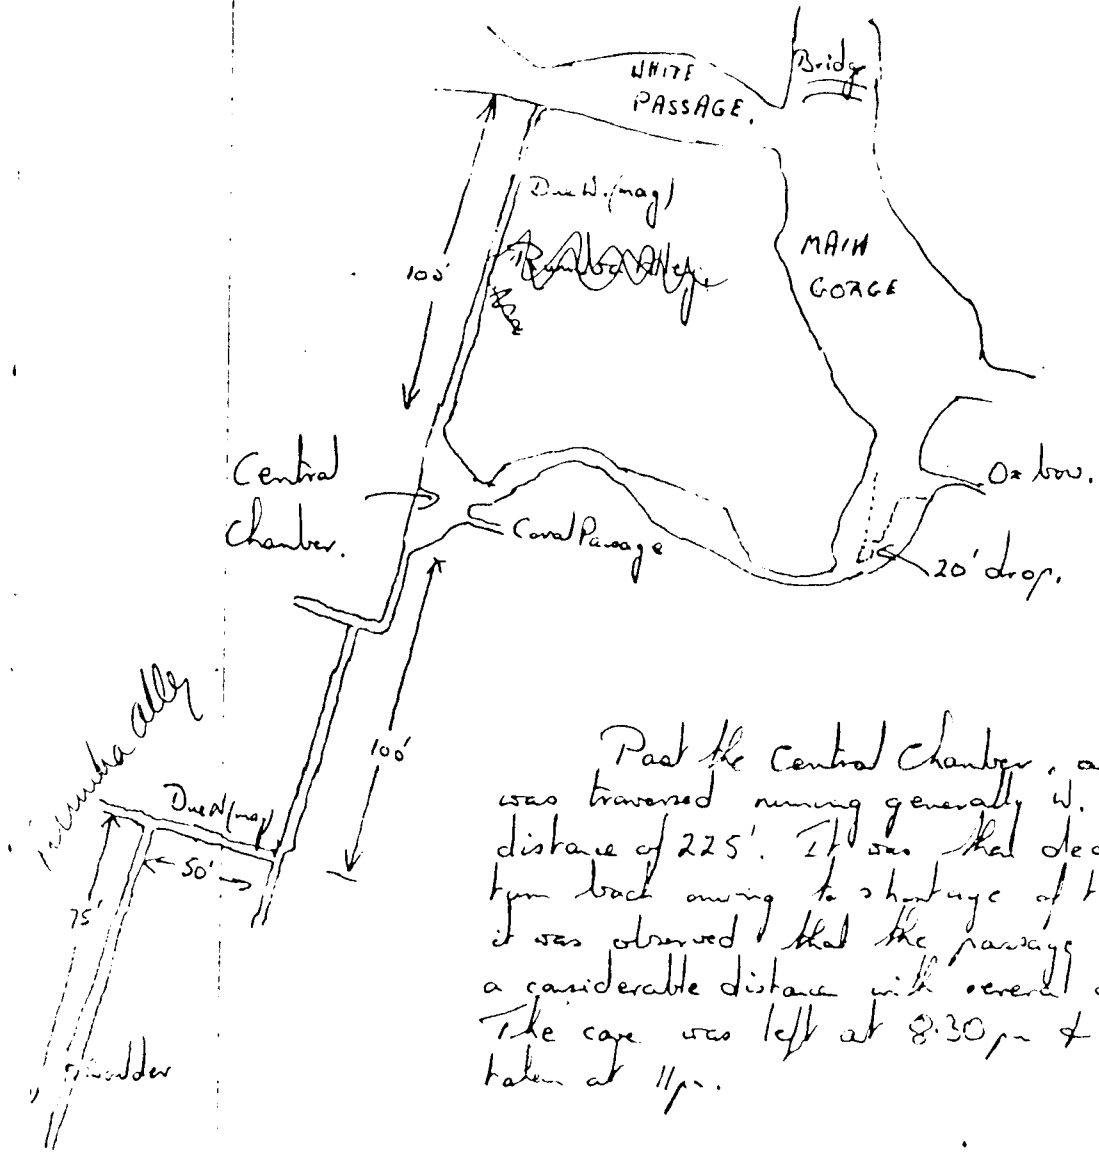 WHITE
PASSAGE.
Bridge
Due W. (mag)
MAIN
GORGE
100'
Central
Chamber.
Coral Passage
Ox bow.
20' drop.
100'
alley
Due N (mag)
50'
75'
Past the Central Chamber, a
was traversed running generally W.
distance of 225'. It was then dec
turn back owing to shortage of t
it was observed that the passage
a considerable distance with several
The cave was left at 8.30 pm &
taken at 11 pm.